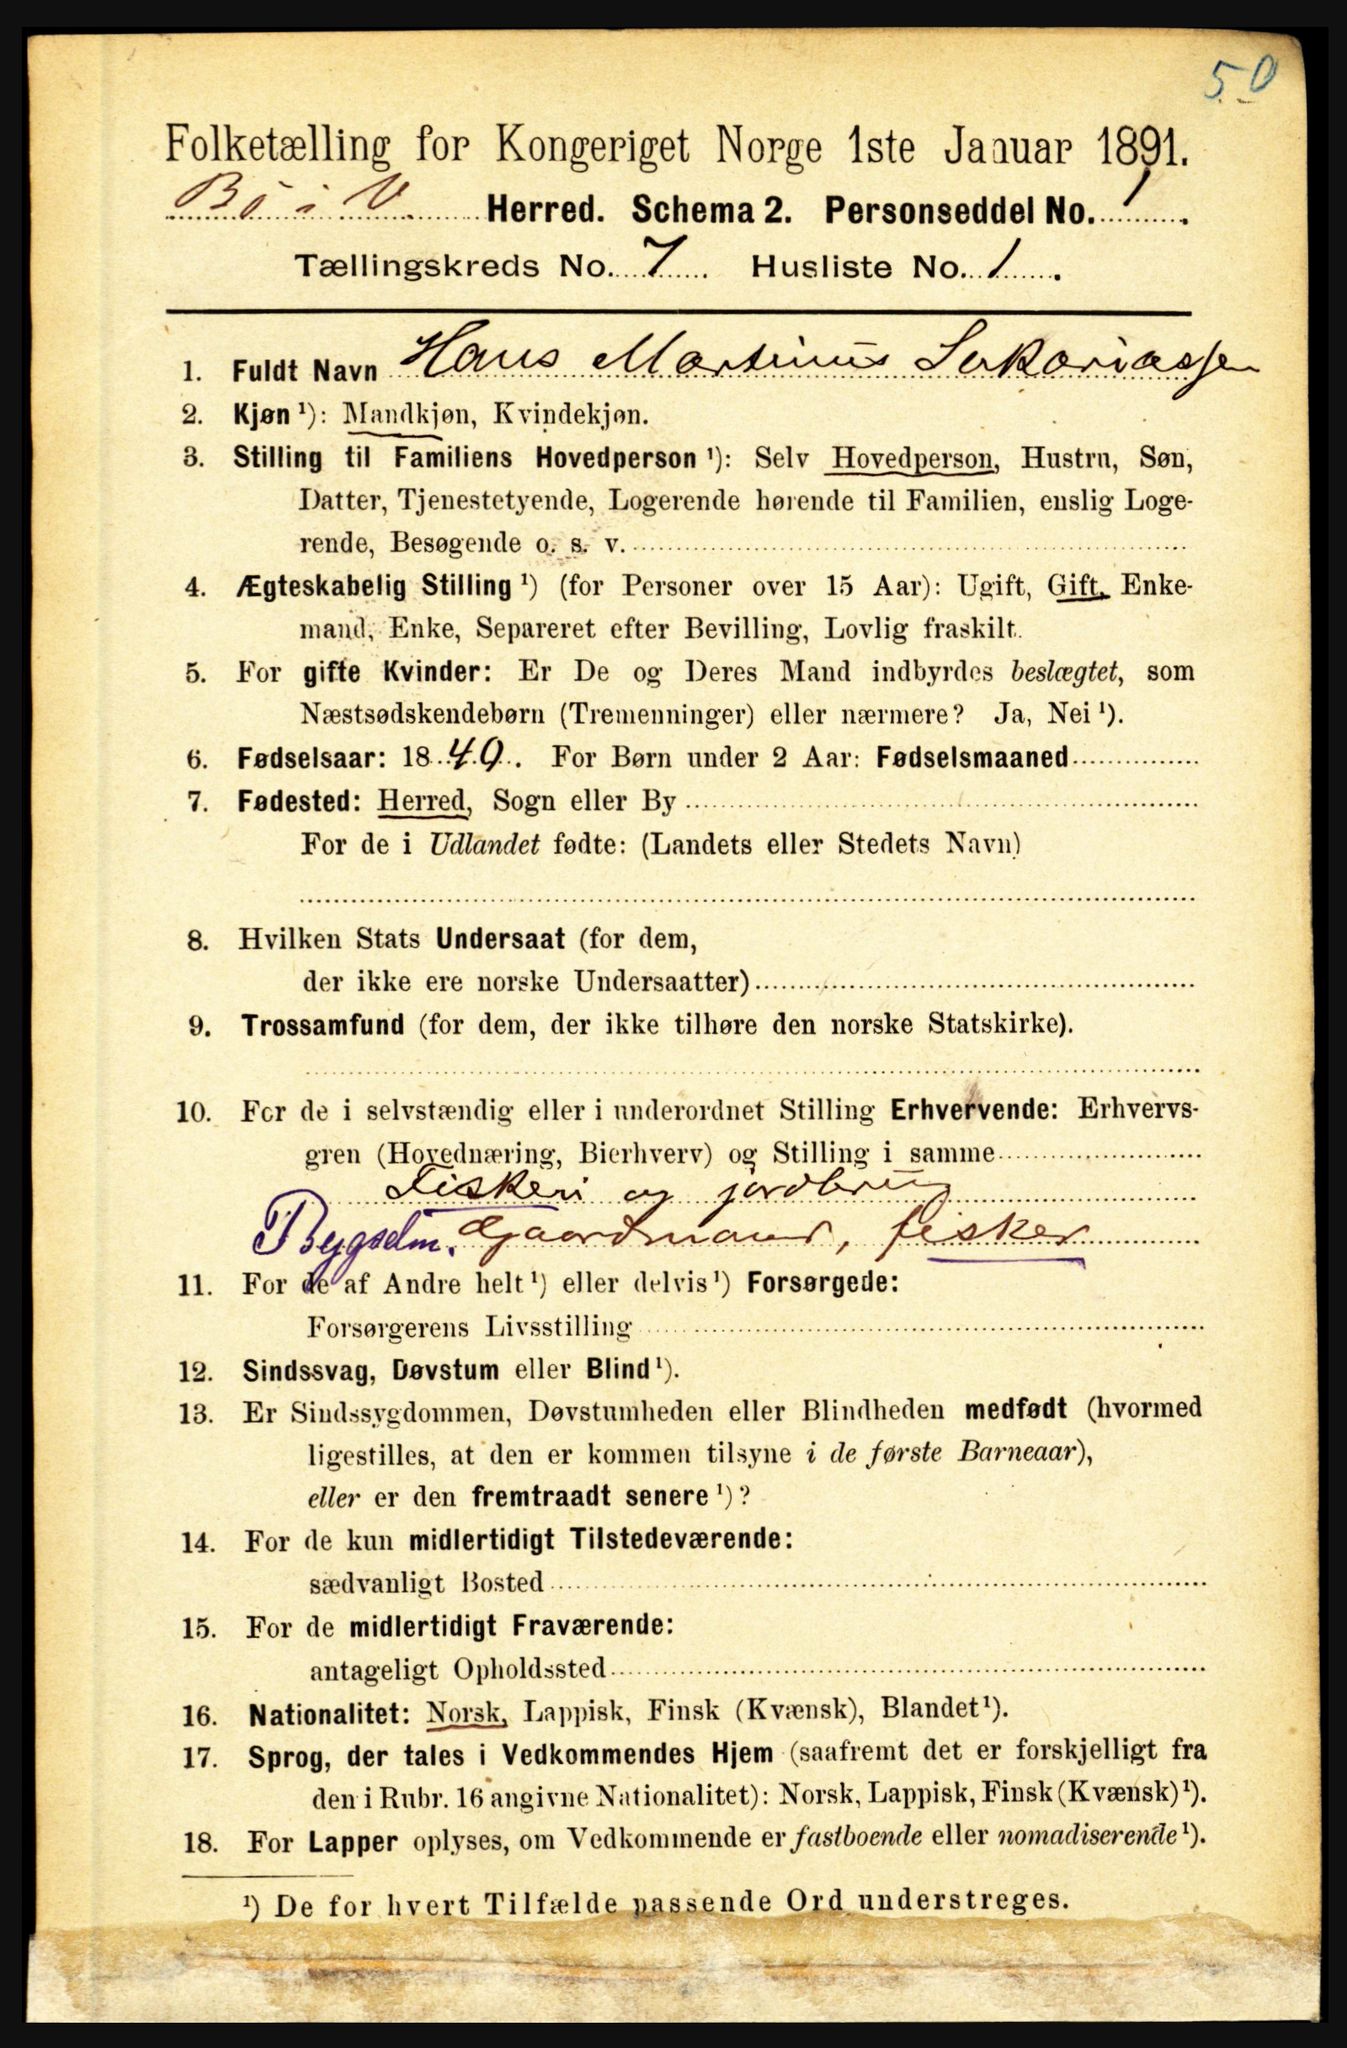 50
Folketælling for Kongeriget Norge 1ste Januar 1891.
Bø i V. Herred. Schema 2. Personseddel No. 1.
Tællingskreds No. 7. Husliste No. 1.
1. Fuldt Navn Hans Martinus Sakariassen
2. Kjøn ¹): Mandkjøn, Kvindekjøn.
3. Stilling til Familiens Hovedperson ¹): Selv Hovedperson, Hustru, Søn,
Datter, Tjenestetyende, Logerende hørende til Familien, enslig Loge-
rende, Besøgende o. s. v.
4. Ægteskabelig Stilling ¹) (for Personer over 15 Aar): Ugift, Gift, Enke-
mand, Enke, Separeret efter Bevilling, Lovlig fraskilt.
5. For gifte Kvinder: Er De og Deres Mand indbyrdes beslægtet, som
Næstsødskendebørn (Tremenninger) eller nærmere? Ja, Nei ¹).
6. Fødselsaar: 1849. For Børn under 2 Aar: Fødselsmaaned
7. Fødested: Herred, Sogn eller By
For de i Udlandet fødte: (Landets eller Stedets Navn)
8. Hvilken Stats Undersaat (for dem,
der ikke ere norske Undersaatter)
9. Trossamfund (for dem, der ikke tilhøre den norske Statskirke).
10. For de i selvstændig eller i underordnet Stilling Erhvervende: Erhvervs-
gren (Hovednæring, Bierhverv) og Stilling i samme
Fiskeri og jordbrug
Bygselm. Gaardmand, fisker
11. For de af Andre helt ¹) eller delvis ¹) Forsørgede:
Forsørgerens Livsstilling
12. Sindssvag, Døvstum eller Blind ¹).
13. Er Sindssygdommen, Døvstumheden eller Blindheden medfødt (hvormed
ligestilles, at den er kommen tilsyne i de første Barneaar),
eller er den fremtraadt senere ¹)?
14. For de kun midlertidigt Tilstedeværende:
sædvanligt Bosted
15. For de midlertidigt Fraværende:
antageligt Opholdssted
16. Nationalitet: Norsk, Lappisk, Finsk (Kvænsk), Blandet ¹).
17. Sprog, der tales i Vedkommendes Hjem (saafremt det er forskjelligt fra
den i Rubr. 16 angivne Nationalitet): Norsk, Lappisk, Finsk (Kvænsk) ¹).
18. For Lapper oplyses, om Vedkommende er fastboende eller nomadiserende ¹).
¹) De for hvert Tilfælde passende Ord understreges.